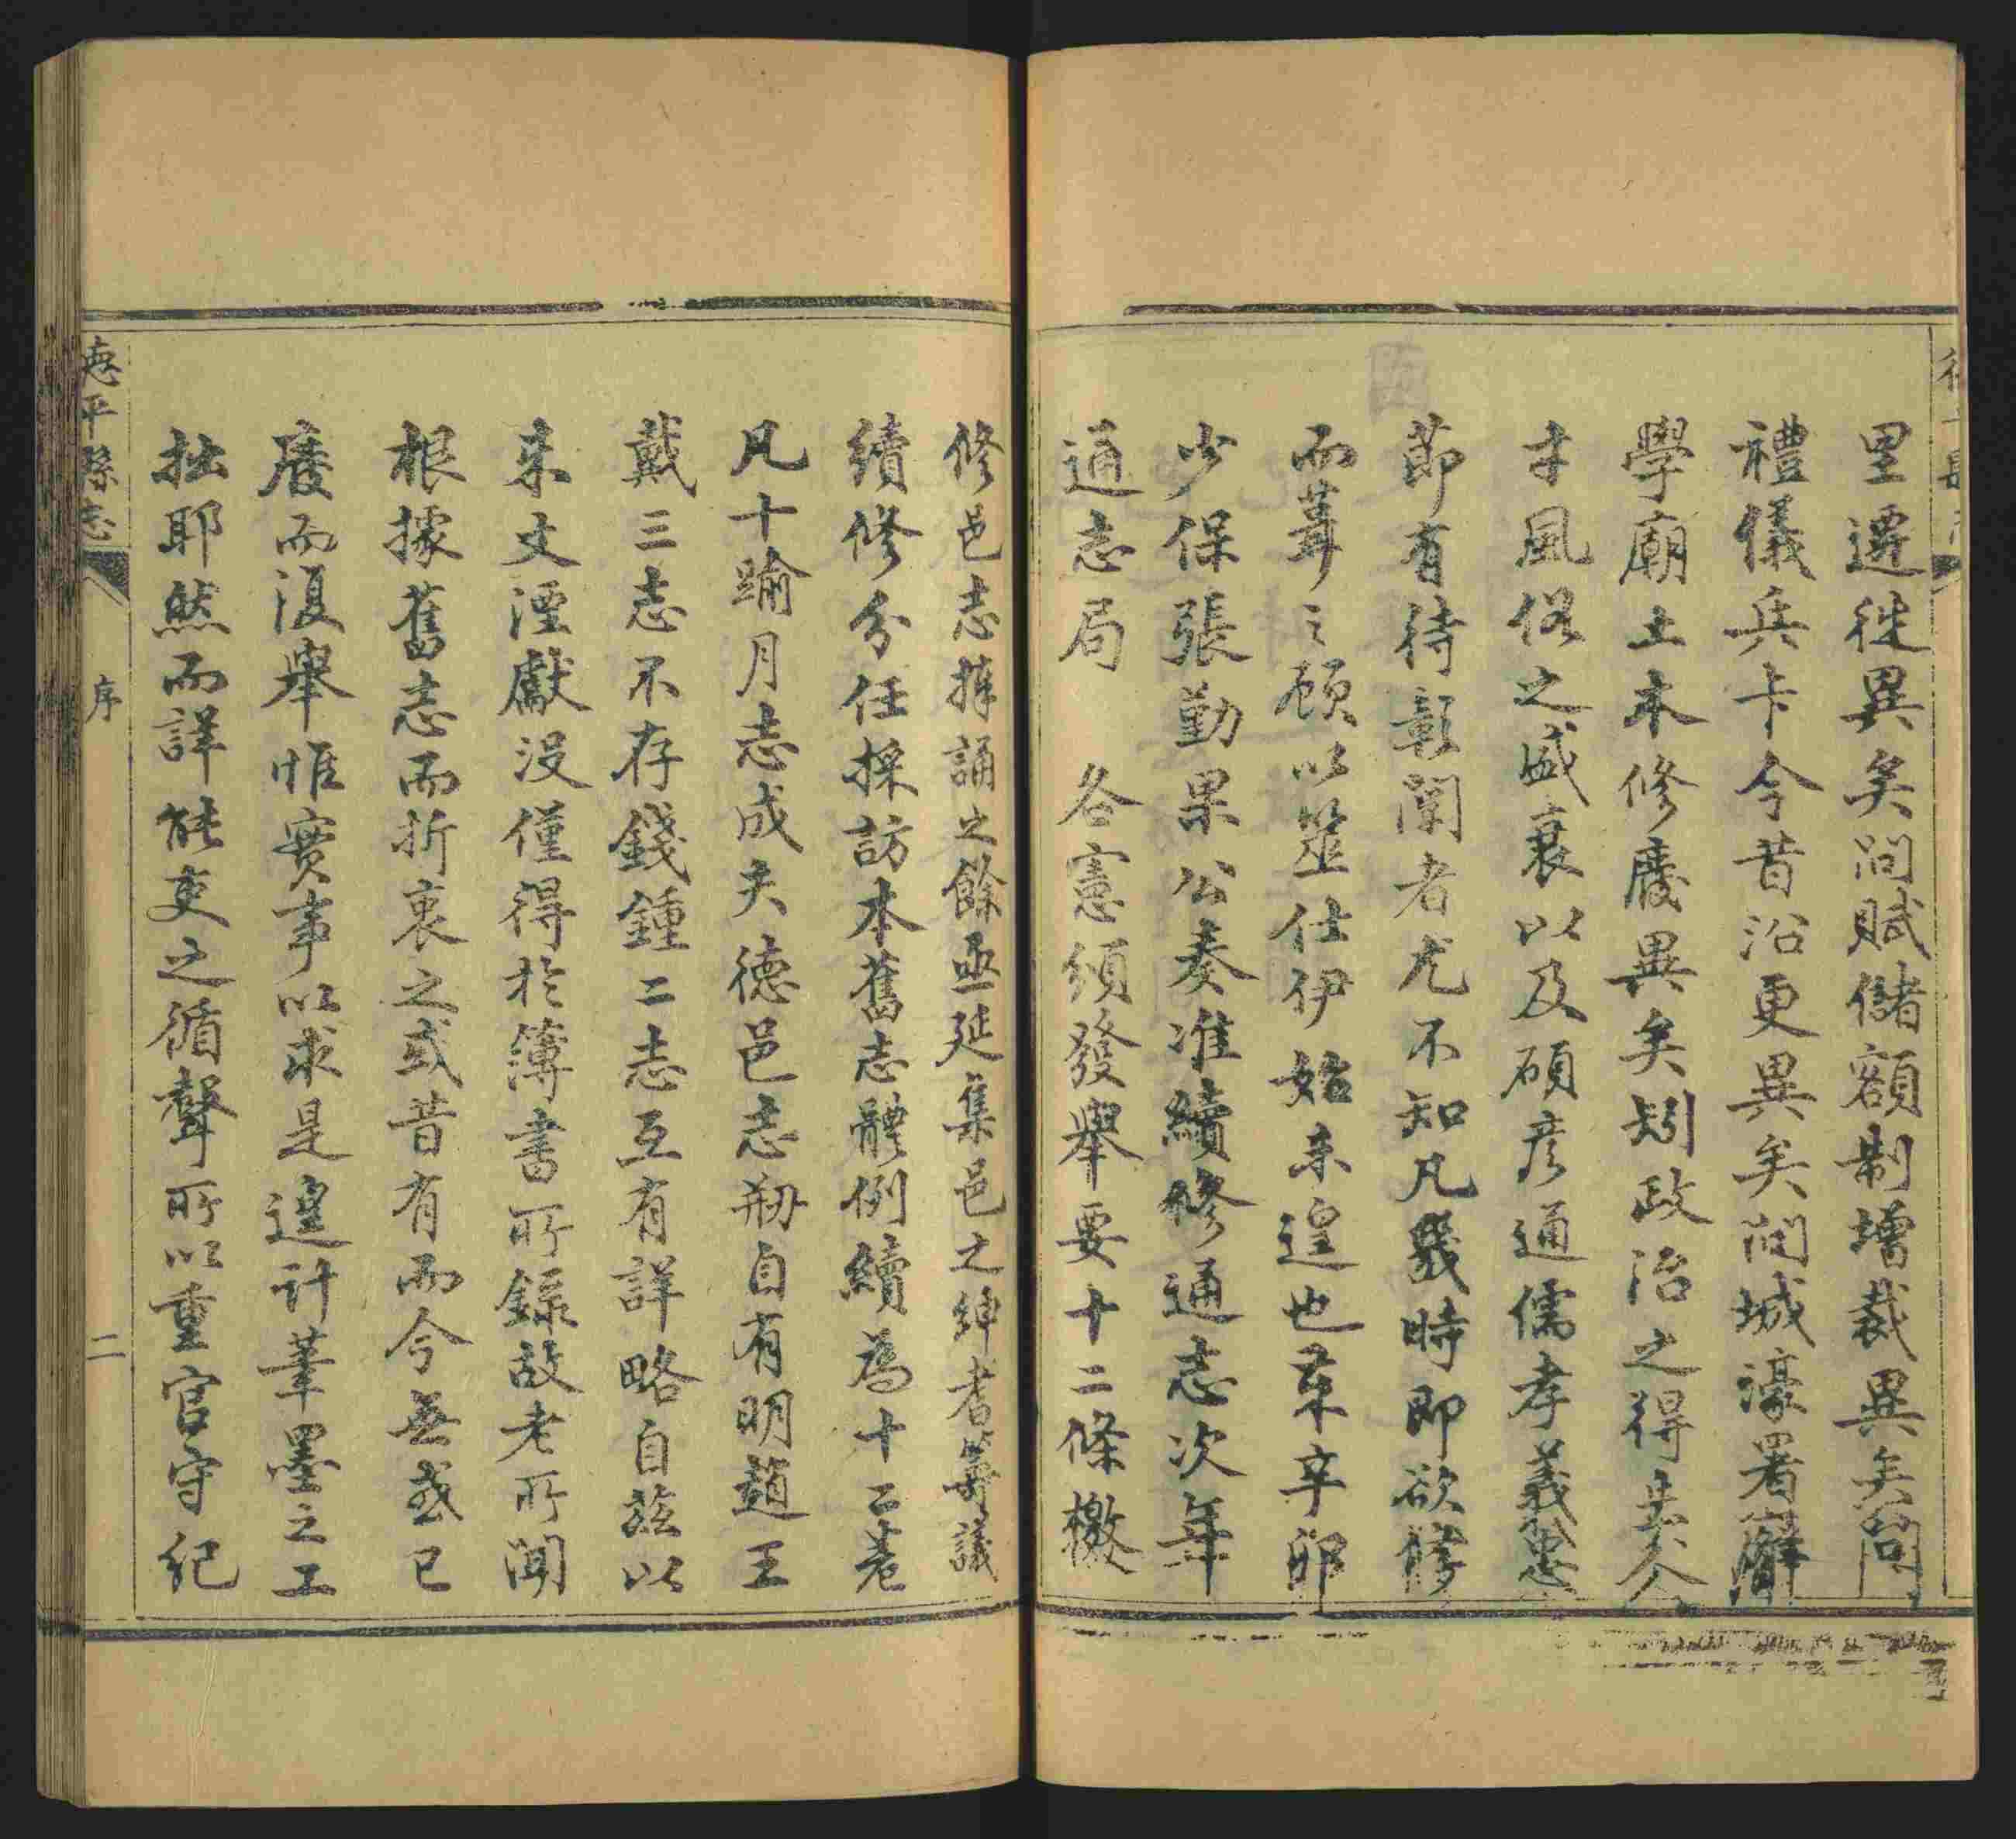 里遷徙異矣問賦儲額制增裁異矣問
禮儀兵卡今昔沿更異矣問城濠署廨
學廟土木修廢異矣矧政治之得失人
才風俗之盛衰以及碩彥通儒孝義忠
節有待彰闡者尤不知凡幾時即欲修
而葺之顧以筮仕伊始未遑也革辛卯
少保張勤果公奏准續修通志次年
通志局　各憲頒發舉要十二條檄
修邑志捧誦之餘亟延集邑之紳耆籌議
續修分任採訪本舊志體例續為十二卷
凡十踰月志成夫德邑志刱自有明趙王
戴三志不存錢鍾二志互有詳略自茲以
来文湮獻没僅得於簿書所錄故老所聞
根據舊志而折衷之或昔有而今無或已
廢而復舉惟實事以求是遑計筆墨之工
拙耶然而詳能吏之循聲所以重官守紀
惪平縣志
序
二